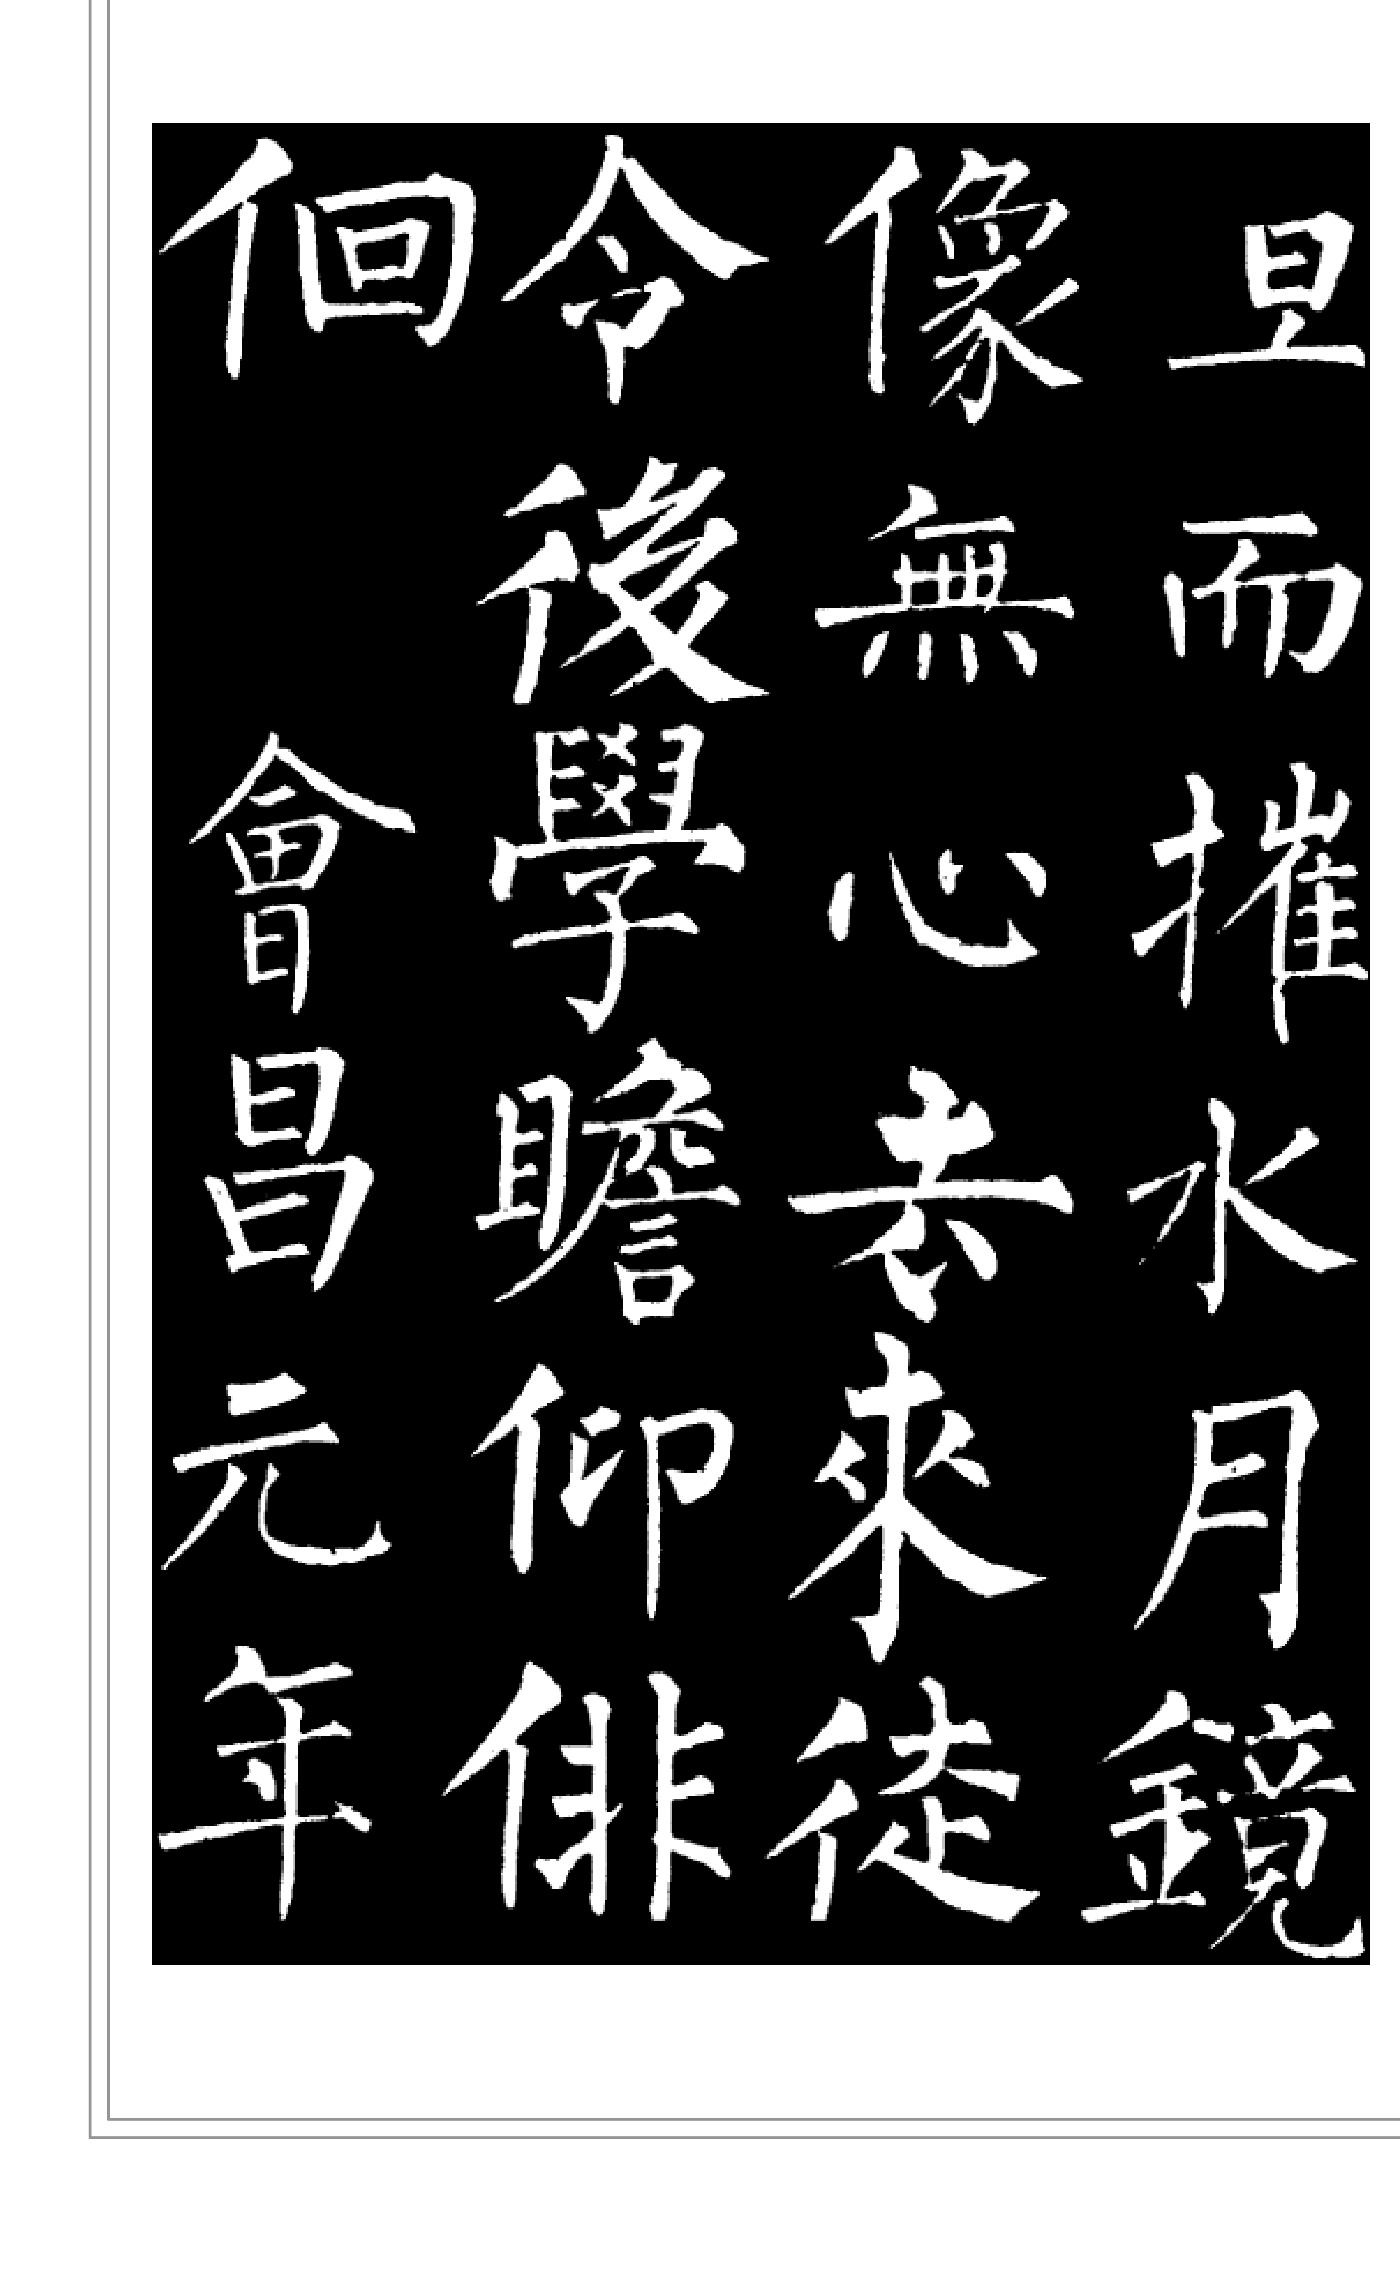 旦而摧水月鏡
像無心去來徒
令後學瞻仰俳
佪 會昌元年